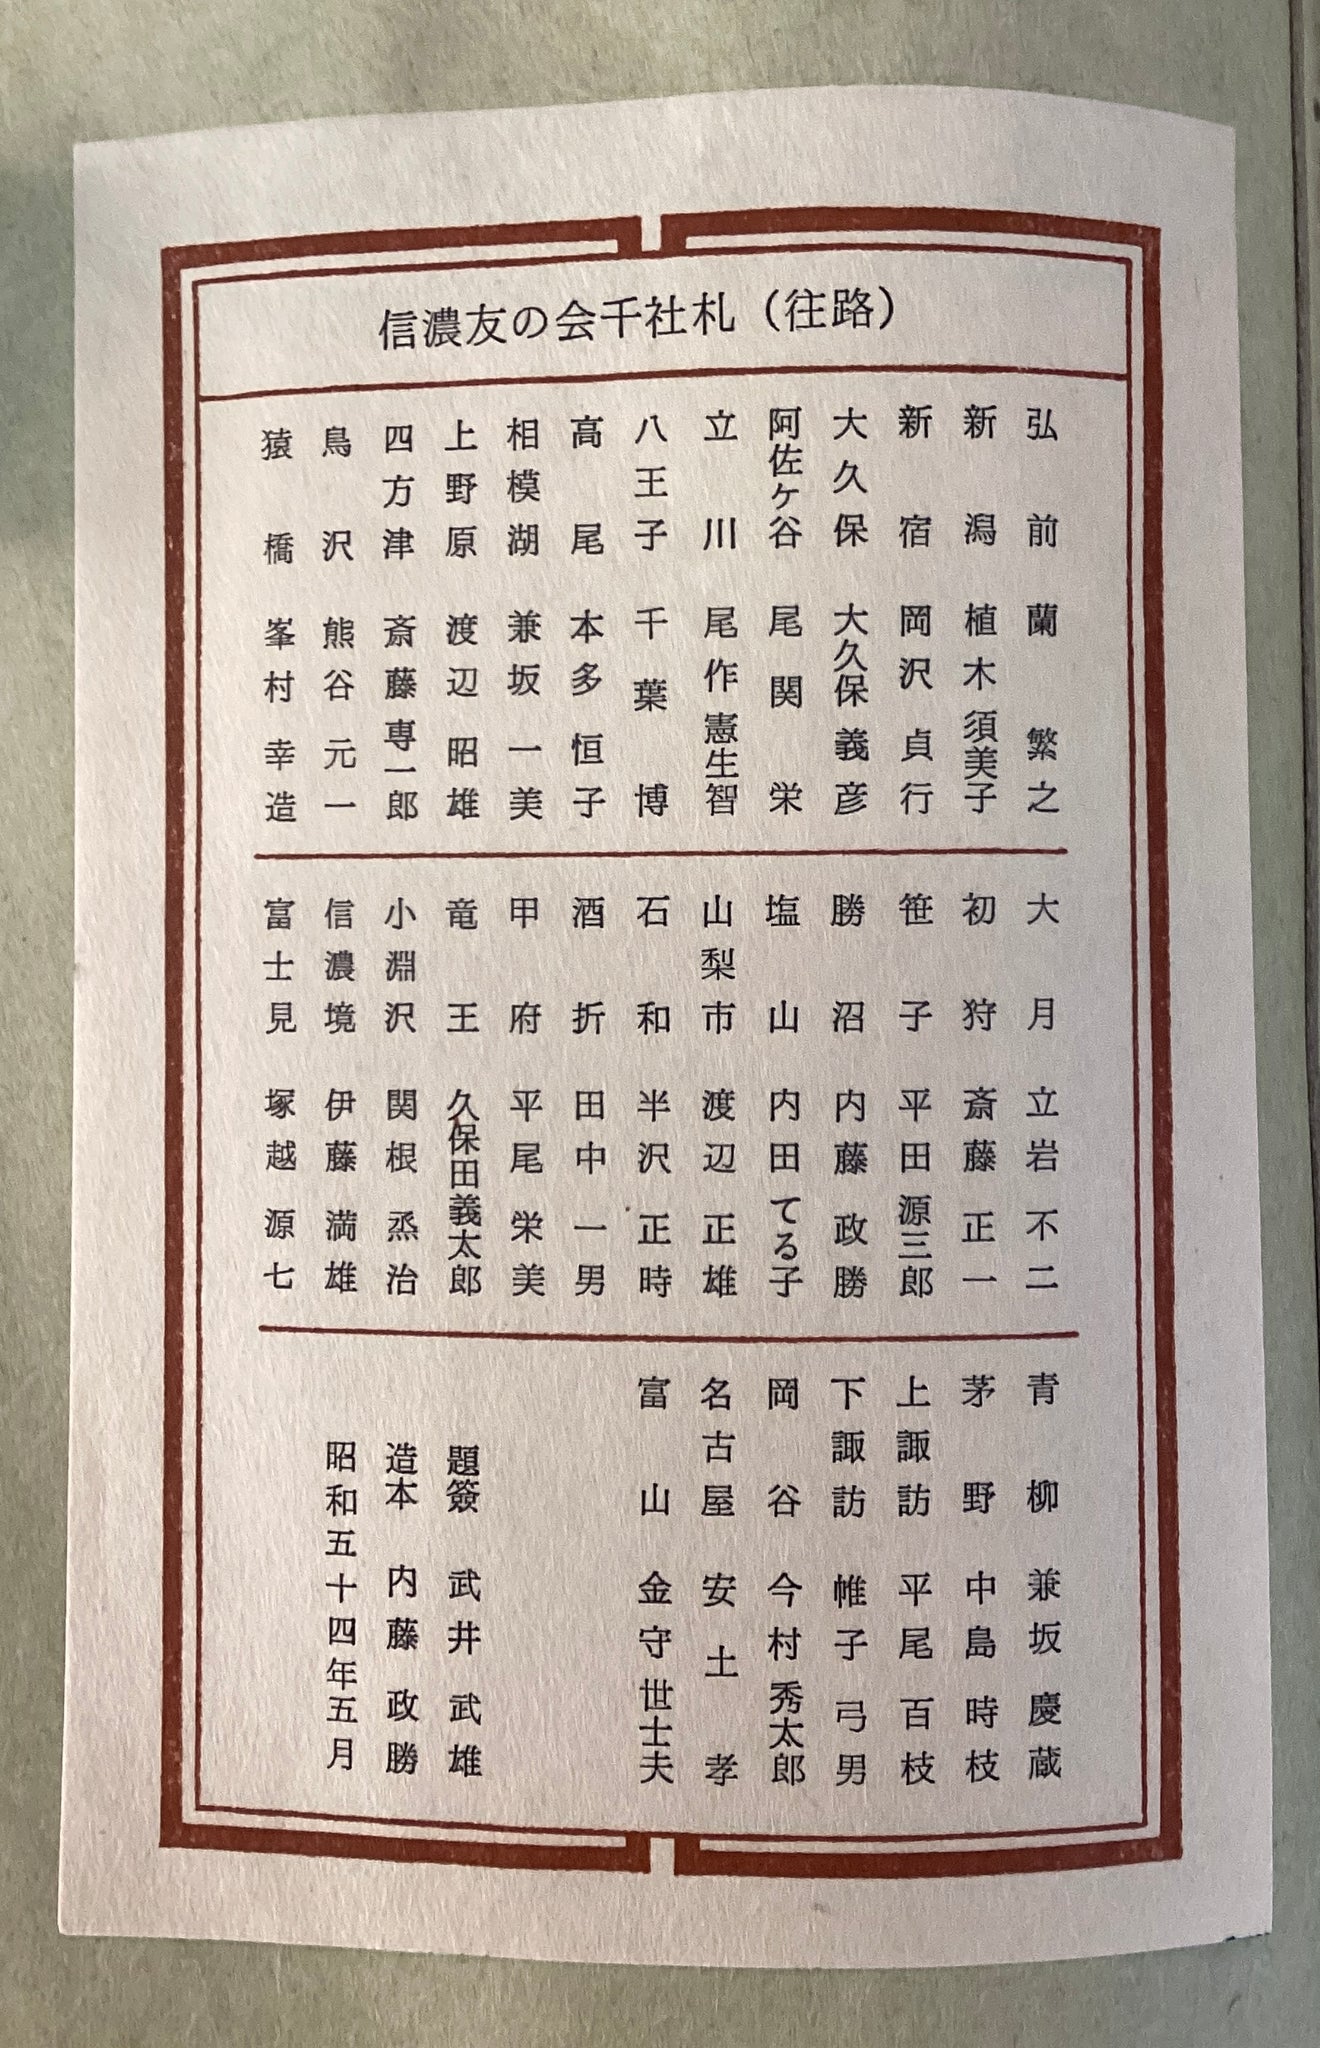 信濃友の会千社札（往路）
弘前　蘭繁之
新潟　植木須美子
新宿　岡沢貞行
大久保　大久保義彦
阿佐ケ谷　尾関栄
立川　尾作憲生智
八王子　千葉博
高尾　本多恒子
相模湖　兼坂一美
上野原　渡辺昭雄
四方津　斎藤専一郎
鳥沢　熊谷元一
猿橋　峯村幸造
大月　立岩不二
初狩　斎藤正一
笹子　平田源三郎
勝沼　内藤政勝
塩山　内田てる子
山梨市　渡辺正雄
石和　半沢正時
酒折　田中一男
甲府　平尾栄美
竜王　久保田義太郎
小淵沢　関根烝治
信濃境　伊藤満雄
富士見　塚越源七
青柳　兼坂慶蔵
茅野　中島時枝
上諏訪　平尾百枝
下諏訪　帷子弓男
岡谷　今村秀太郎
名古屋　安土孝
富山　金守世士夫
題簽　武井武雄
造本　内藤政勝
昭和五十四年五月